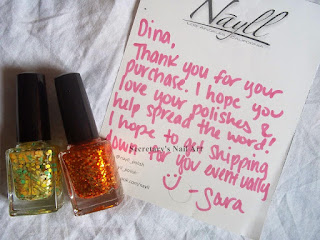 Nayll
Dina,
Thank you for your
purchase. I hope you
love your polishes &
help spread the word!
I hope to be shipping
for you eventually
- Sara
Secretary's Nail Art